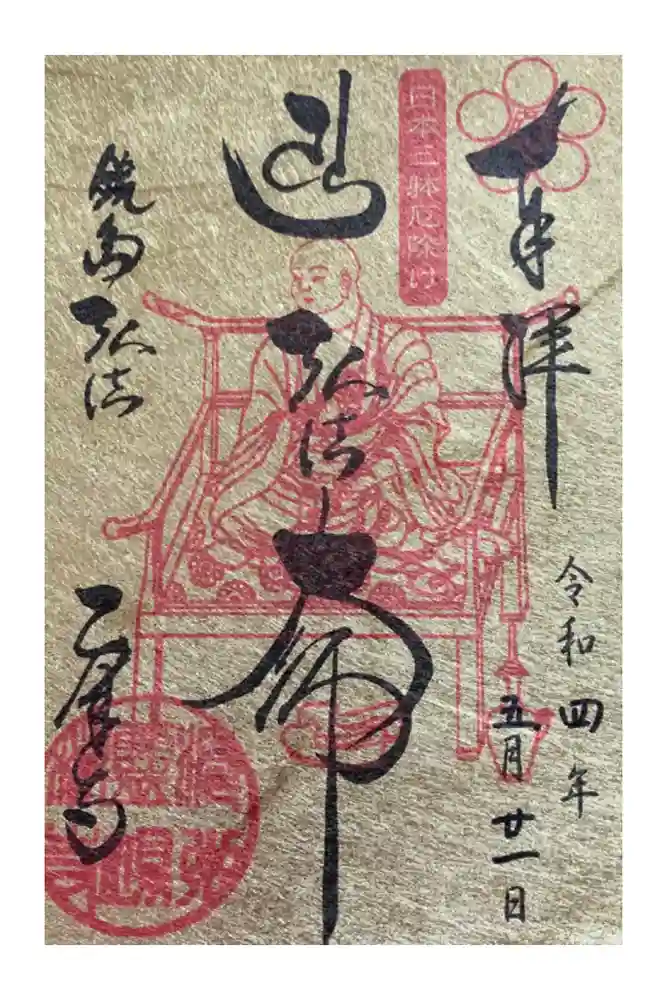 奉拝
令和四年
五月廿一日
日本三躰厄除け
弘法大師
鏡島弘法
乙津寺